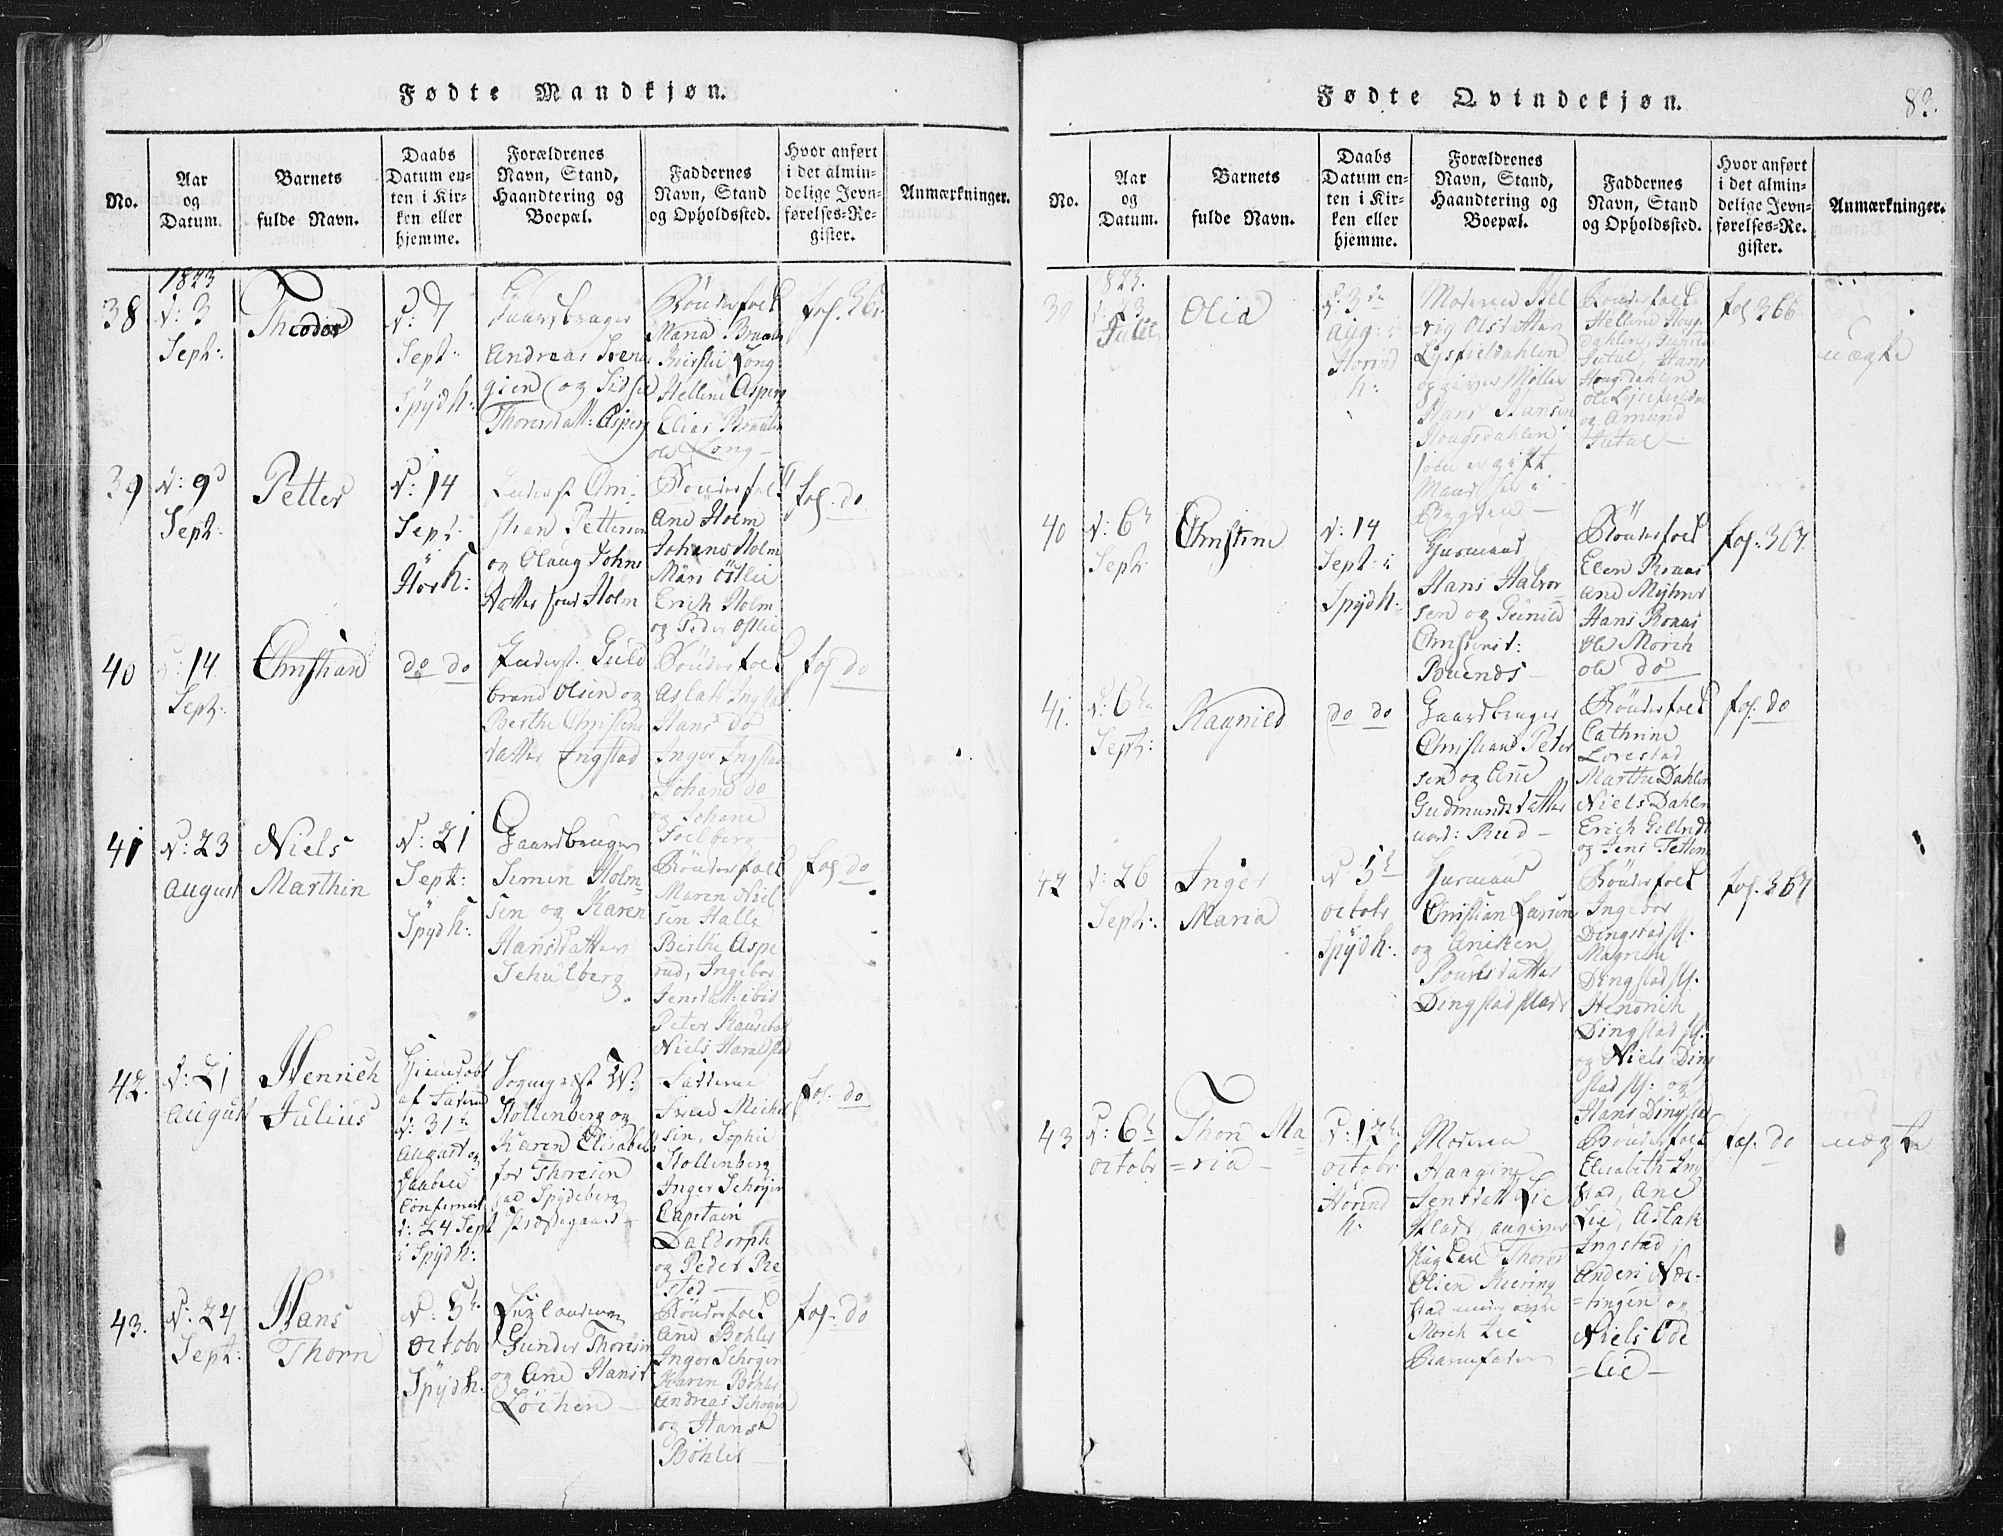 Fødte Mandkjøn.
No.
Aar og Datum.
Barnets fulde Navn.
Daabs Datum enten i Kirken eller hjemme.
Forældrenes Navn, Stand, Haandtering og Boepæl.
Faddernes Navn, Stand og Opholdssted.
Hvor anført i det almindelige Jevnførelses-Register.
Anmærkninger.
38
1823
d: 3
Sept:
Theodor
d: 7
Sept:
Spydh:
Gaardbruger
Andreas
og Sidsel
Thoresdatt: Asperg
Bönderfolk
Maria
Kirstie Long
Helline Asperg
Elias
ole Long
fol. 36
39
d: 9d
Sept:
Petter
d: 14
Sept:
Hörk:
Inderst
Pettersen
og Olaug Johns
datter Holm
Bönderfolk
Ane Holm
Johans Holm
Mari Östlie
Erich Holm
og Peder Östlie
fol. do
40
d: 14
Sept:
Christian
do do
Inderst. Guld
brand Olsen og
Berthe Christens
datter Ingstad
Bönderfolk
Aslak Ingstad
Hans do
Inger Ingstad
Johane do
og Johane
Foelberg
fol do
41
d: 23
August
Niels
Marthin
d: 21
Sept:
Spydh:
Gaardbruger
Simen Holm-
sen og Karen
Hansdatter
Schulberg
Bönderfolk
Maren Niel
sen Halle
Birthe Aspe
rud, Ingebor
Jensdatt: ibid
Peter
Niels Haraldstad
fol do
42.
d: 21
August
Henrich
Julius
Hjemdöbt
af
d: 31te
August og
Daaben
Confirmert
d: 24 Sept
i Spydh:
Sogneprest W:
Hollenberg og
Karen Elisabeth
for Thoresen
paa Spydeberg
Præstegaard
Fadderne
Frue Michel
sen, Sophie
Hollenberg
Inger Schøjen
Capitain
Daldorph
og Peder Re-
sted
fol. do
43.
d: 24
Sept:
Hans
Thorn
d: 5te
Octobr
Spydh:
Gunder Thoresen
og Ane Hansd
Löchen
Bönderfolk
Ane Böhler
Inger Schøjen
Karen Böhler
Andreas Schøjen
og Hans
Böhler
fol. do
Fødte Qvindekjøn.
83.
No.
Aar og Datum.
Barnets fulde Navn.
Daabs Datum enten i Kirken eller hjemme.
Forældrenes Navn, Stand, Haandtering og Boepæl.
Faddernes Navn, Stand og Opholdssted.
Hvor anført i det almindelige Jevnførelses-Register.
Anmærkninger.
39
823.
d: 23
Julii
Olia
d: 3die
Aug: i
Hovind
k:
Moderen Hel
vig Olsdatter
Lysfieldahlen
opgiver Møller
Hans Hansen
Hougsdahlen
som er gift
Mand her i
Bygden
Bönderfolk
Helline Houg
dahlen, Gunild
Jutul, Hans
Hougsdahlen
ole Lysfieldal
og Amund
Jutul
fol 366
uægte
40
d: 6te
Sept:
Christine
d: 14
Sept: i
Spydh:
Huusmand
Hans Halvor
sen og Gunild
Christensd:
Bönderfolk
Elen
Ane Myhrer
Hans
Ole Morch
ole do
fol. 367
41.
d: 6te
Sept:
Ragnild
do do
Gaardbruger
Christian Peter
sen og Ane
Gudmundsdatter
nord: Rud
Bönderfolk
Cathrine
Lorestad
Marthe Dahlen
Niels Dahlen
Erich
og Jens
fol. do
42
d: 26
Sept:
Inger
Maria
d 5te
Octobr
Spydh:
Huusmand
Christian Larsen
og Aniken
Poulsdatter
Dingstad Plads
Bönderfolk
Ingebor
Dingstad Pl.
Magrethe
Dingstad Pl.
Hendrich
Dingstad Pl.
og Niels Ding
stad Pl: og
Hans Dingstad
fol. 367
43
d: 6te
Octobr
Thon Ma
=ria
d: 12te
Octobr
Hovind
k:
Moderen
Haagine
Jensdatt Lie
Plads, angiver
Thor
Olsen
Morch Lie
Barnefader
Bönderfolk
Elisabeth Ing
stad, Ane
Lie, Aslak
Ingstad
Anders Næs-
=tingen og
Niels Ode
=lie
fol. do
uægte